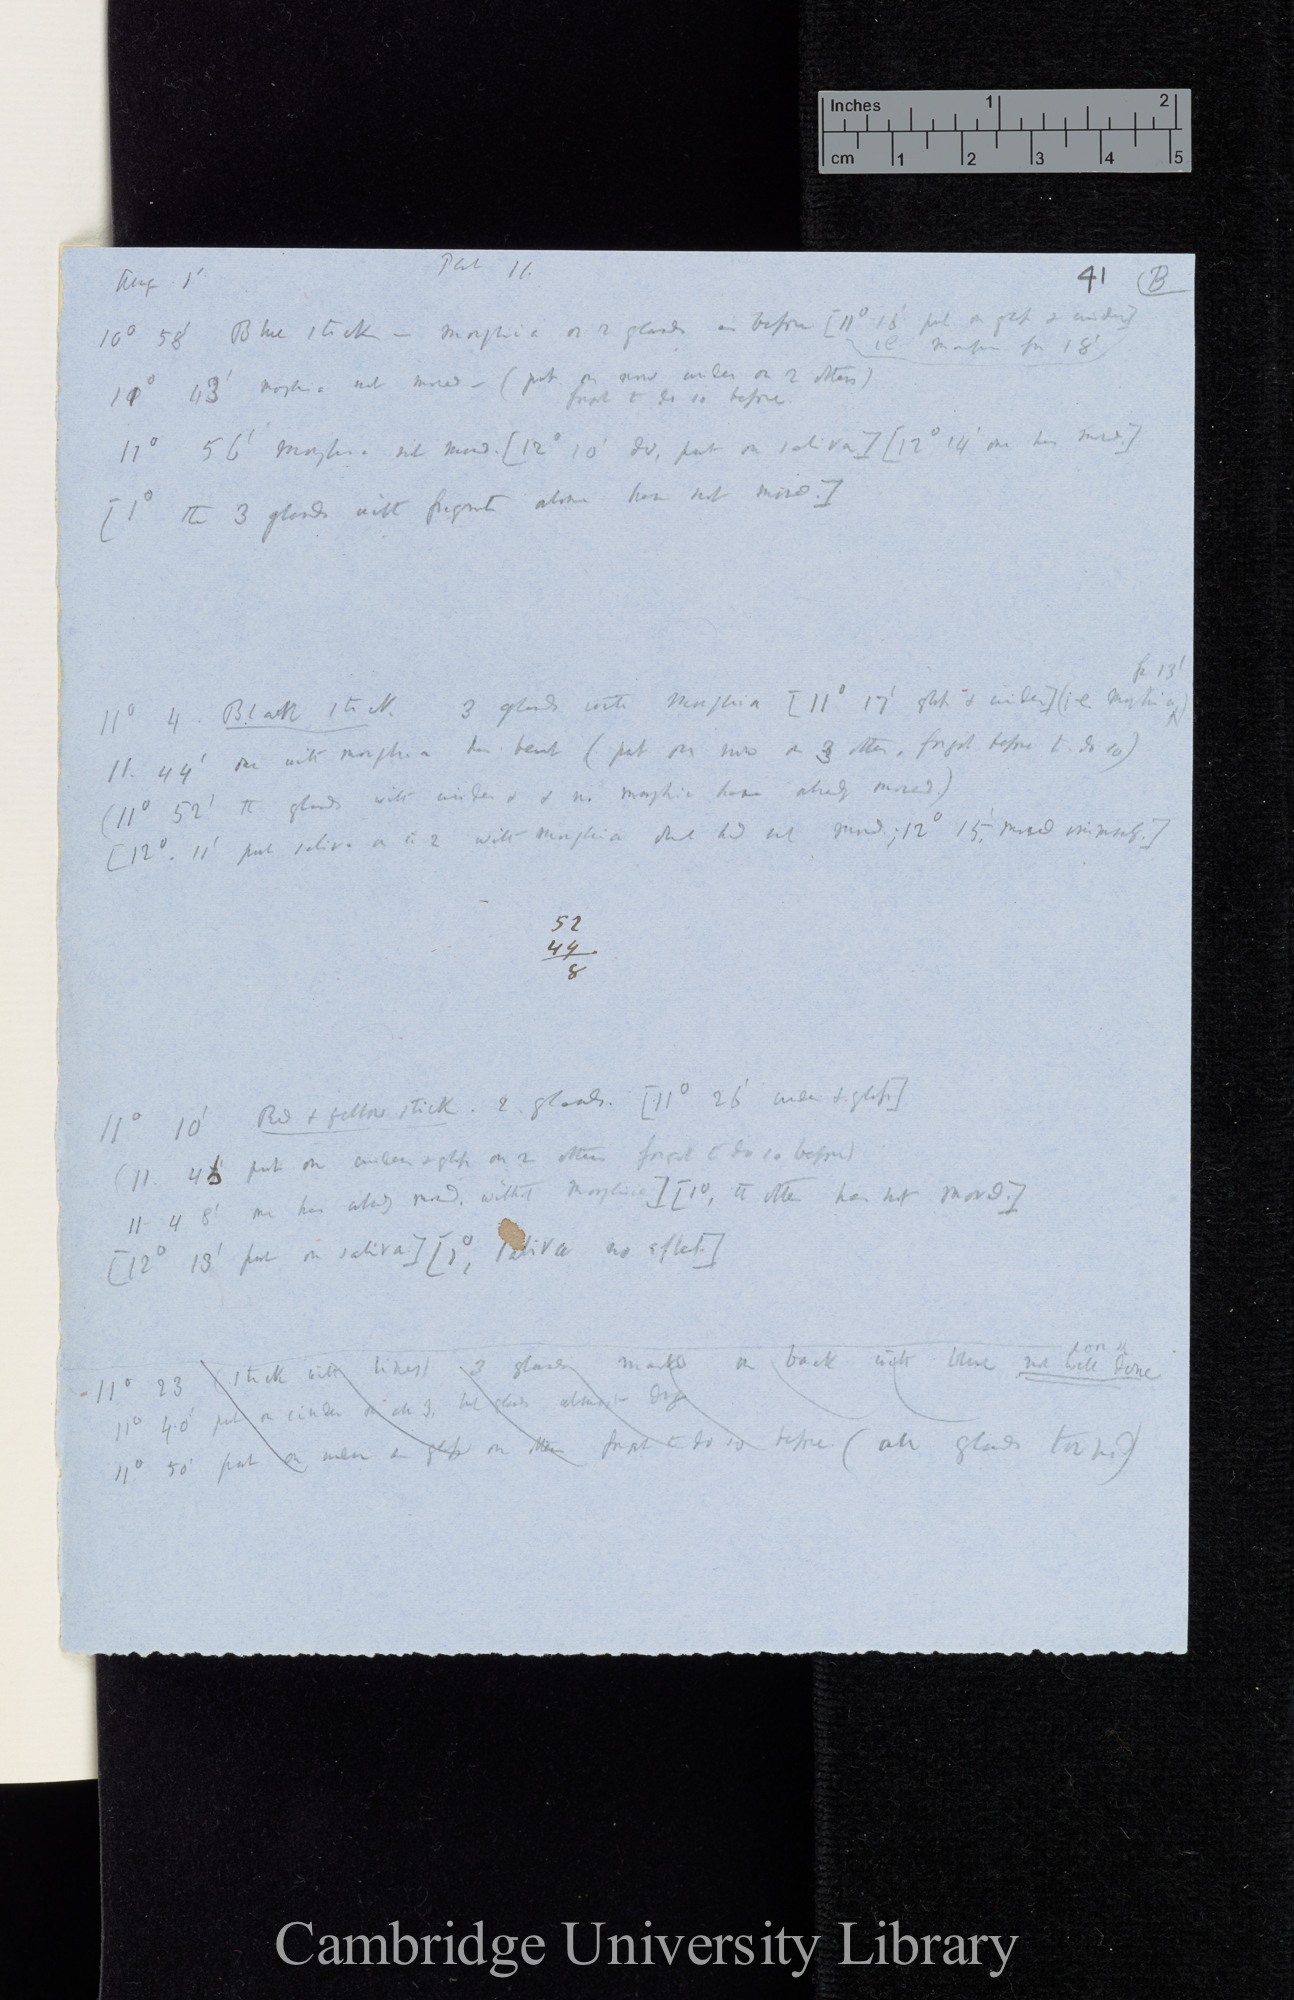 Inches 1 2
cm 1 2 3 4 5
Aug 1' 11. 41 (B
10° 58' Blue stick — Morphia on 2 glands as before [11° 16' put on glass & cinder]
ie for 18'
11° 43' morphia not moved — (put on now cinder on 2 others)
forgot to do so before.
11° 56' Morphia not moved. [12° 10' do, put on saliva] [12° 14' one has moved.]
[1° the 3 glands with fragments alone have not moved.]
for 13'
11° 4. Black stick. 3 glands with Morphia [11° 17' glass & cinder] (i.e. Morphia)
11. 44' one with morphia has bent (put on now on 3 others, forgot before to do so)
(11° 52' the glands with cinders & no morphia have already moved)
[12°. 11' put saliva on the 2 with Morphia that had not moved; 12° 15', moved immensely.]
52
44
8
11° 10' Red & yellow stick. 2 glands. [11° 26' cinder & glass]
(11. 46' put on cinders & glass on 2 others forgot to do so before)
11- 48' one has already moved, without Morphia] [1°, the other has not moved.]
[12° 13' put on saliva] [1°, saliva no effect.]
11° 23 (stick with lines) 3 glands marked on back with blue not well done
11° 40' put on cinder on all 3, but glands almost dry
11° 50' put on on glass on others forgot to do so before. (all glands torpid)
Cambridge University Library